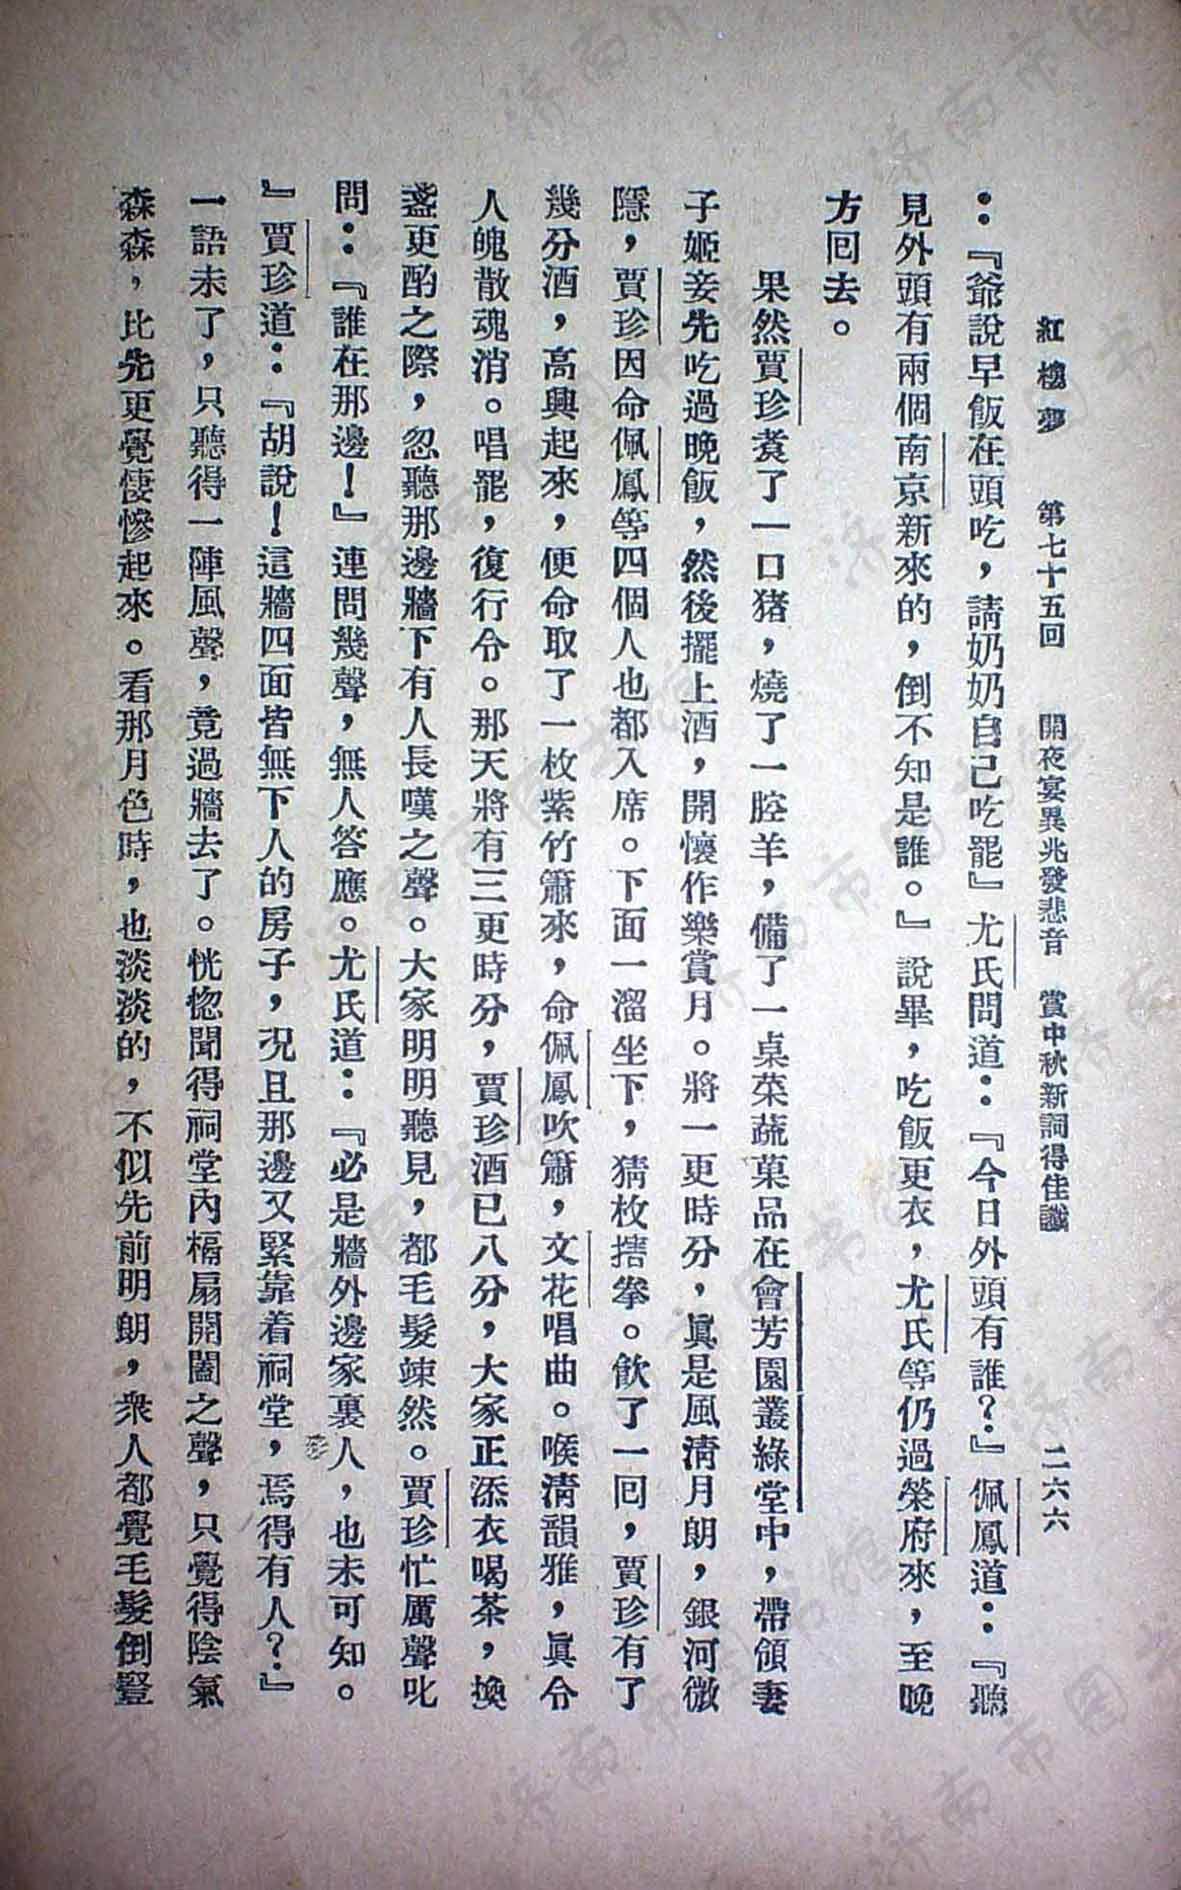 紅樓夢　第七十五回　開夜宴異兆發悲音　賞中秋新詞得佳讖　二六六
：『爺說早飯在頭吃，請奶奶自己吃罷』尤氏問道：『今日外頭有誰？』佩鳳道：『聽
見外頭有兩個南京新來的，倒不知是誰。』說畢，吃飯更衣，尤氏等仍過榮府來，至晚
方回去。
果然賈珍煑了一口猪，燒了一腔羊，備了一桌菜蔬菓品在會芳園叢綠堂中，帶領妻
子姬妾先吃過晚飯，然後擺上酒，開懷作樂賞月。將一更時分，眞是風淸月朗，銀河微
隱，賈珍因命佩鳳等四個人也都入席。下面一溜坐下，猜枚搳拳。飲了一回，賈珍有了
幾分酒，高興起來，便命取了一枚紫竹簫來，命佩鳳吹簫，文花唱曲。喉淸韻雅，眞令
人魄散魂消。唱罷，復行令。那天將有三更時分，賈珍酒已八分，大家正添衣喝茶，換
盞更酌之際，忽聽那邊牆下有人長嘆之聲。大家明明聽見，都毛髮竦然。賈珍忙厲聲叱
問：『誰在那邊！』連問幾聲，無人答應。尤氏道：『必是牆外邊家裏人，也未可知。
』賈珍道：『胡說！這牆四面皆無下人的房子，况且那邊又緊靠着祠堂，焉得有人？』
一語未了，只聽得一陣風聲，竟過牆去了。恍惚聞得祠堂內槅扇開闔之聲，只覺得陰氣
森森，比先更覺悽慘起來。看那月色時，也淡淡的，不似先前明朗，衆人都覺毛髮倒豎
济南市图书馆